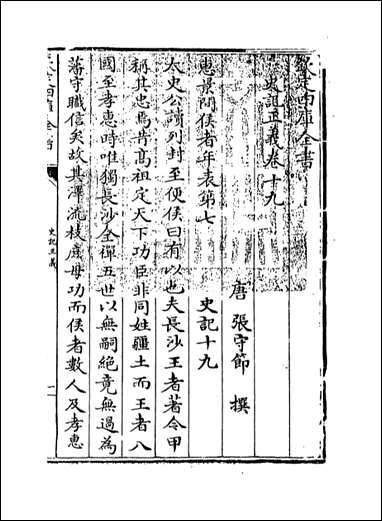 欽定四庫全書
史記正義卷十九
唐 張守節 撰
惠景間侯者年表第七 史記十九
太史公讀列封至便侯曰有以也夫長沙王者著令甲
稱其忠焉昔高祖定天下功臣非同姓疆土而王者八
國至孝惠時唯獨長沙全禪五世以無嗣絕竟無過為
藩守職信矣故其澤流枝庶毋功而侯者數人及孝惠
史記正義
一